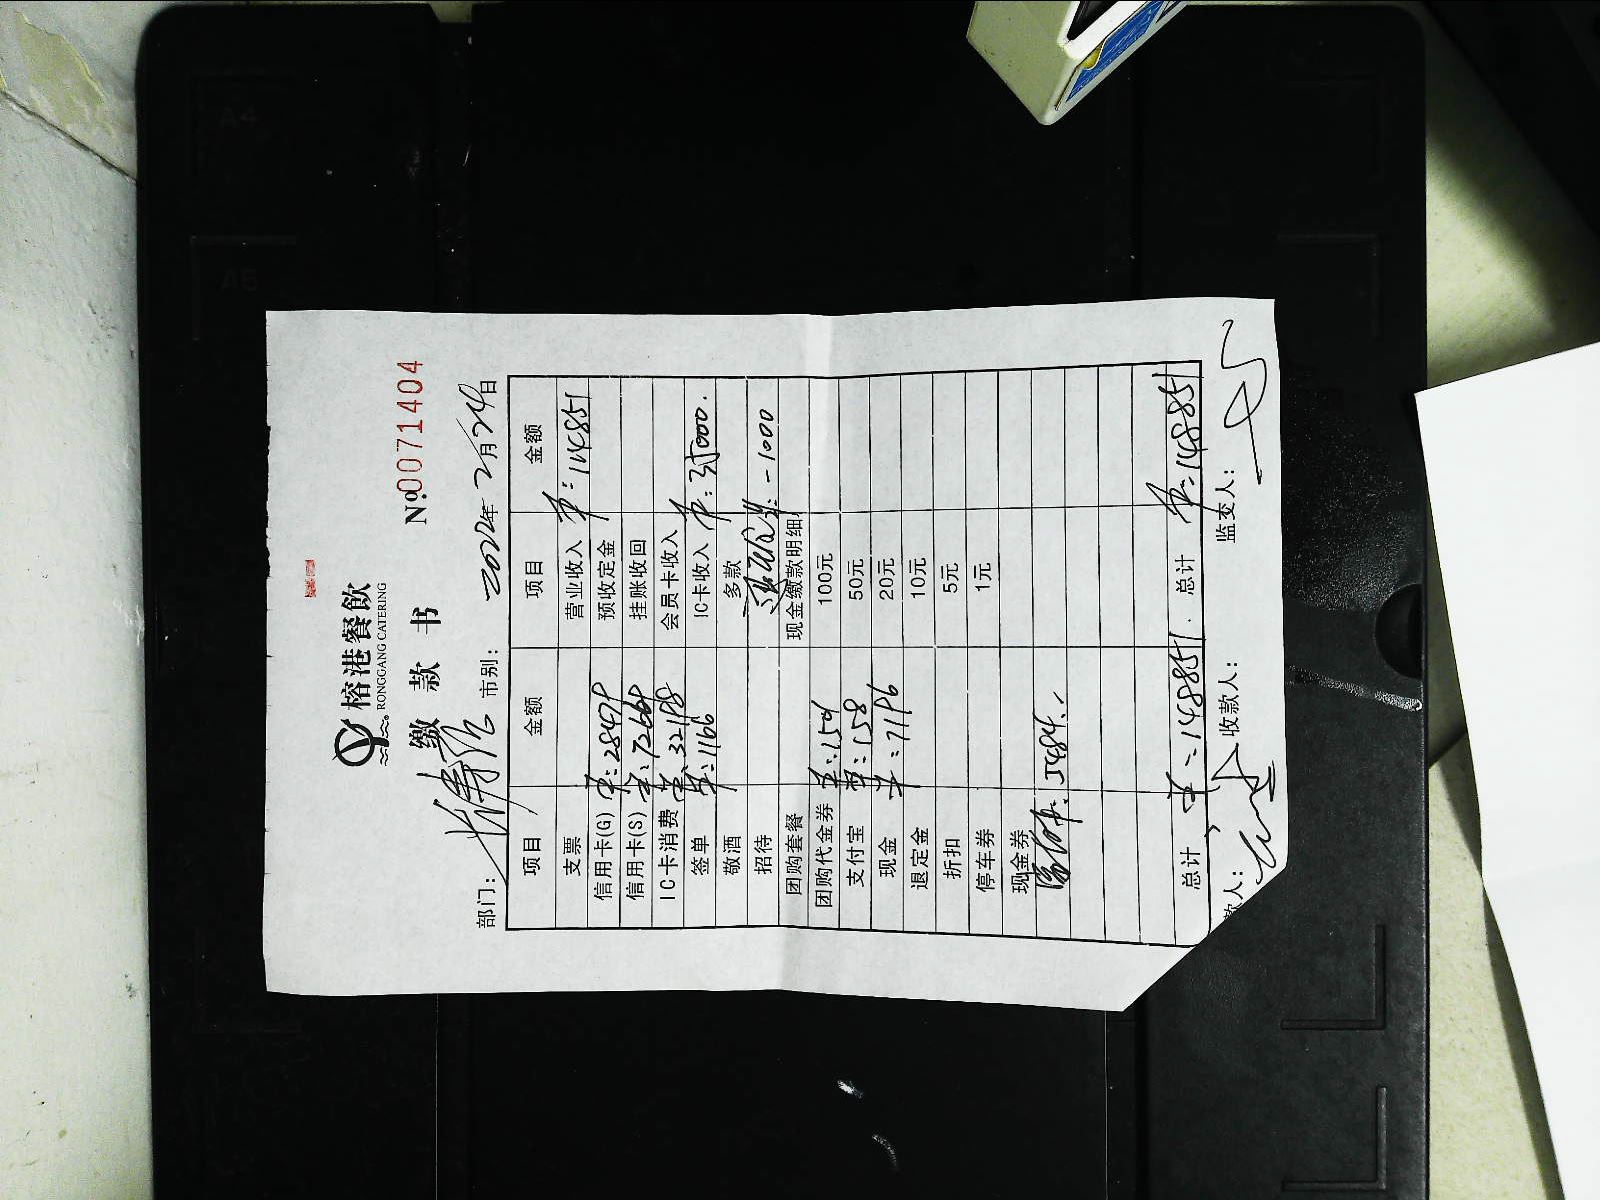 榕港餐飲
RONGGANG CATERING
缴 款 书
№0071404
部门: 市别: 2022年2月24日
项目 金额 项目 金额
支票 营业收入 ¥:148851
信用卡(G) ¥:28479 预收定金
信用卡(S) 挂账收回
IC卡消费 ¥:32198 会员卡收入
签单 ¥:1166 IC卡收入
敬酒 多款
招待 -1000
团购套餐 现金缴款明细
团购代金券 ¥:1501 100元
支付宝 ¥:158 50元
现金 ¥:7196 20元
退定金 10元
折扣 5元
停车券 1元
现金券
总计 ¥:148851. 总计 ¥:148851
款人: 收款人: 监交人:
A4
A5